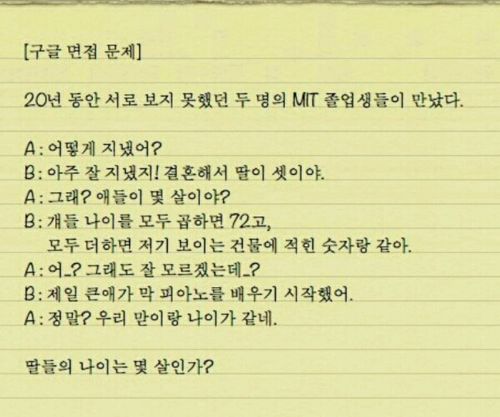 [구글 면접 문제]
20년 동안 서로 보지 못했던 두 명의 MIT 졸업생들이 만났다.
A : 어떻게 지냈어?
B : 아주 잘 지냈지! 결혼해서 딸이 셋이야.
A : 그래? 애들이 몇 살이야?
B : 걔들 나이를 모두 곱하면 72고,
모두 더하면 저기 보이는 건물에 적힌 숫자랑 같아.
A : 어..? 그래도 잘 모르겠는데..?
B : 제일 큰애가 막 피아노를 배우기 시작했어.
A : 정말? 우리 맏이랑 나이가 같네.
딸들의 나이는 몇 살인가?